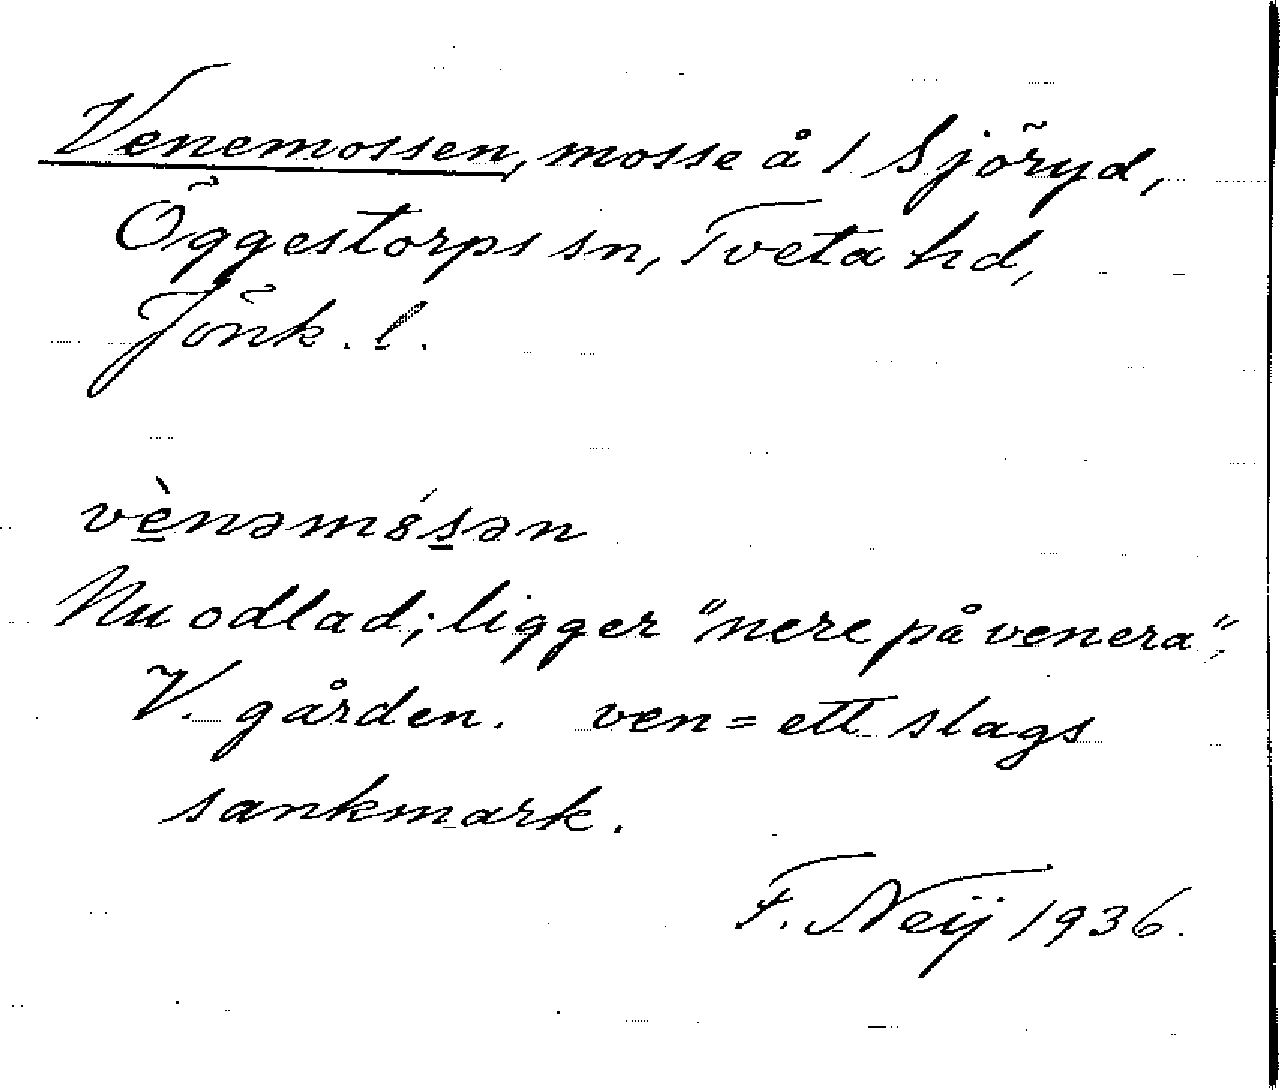 Venemossen, mosse å 1 Sjöryd,
Öggestorps sn, Tveta hd,
Jönk. l.
vènəm8́sən
Nu odlad; ligger "nere på venera",
V. gården. ven = ett slags
sankmark.
F. Neij 1936.